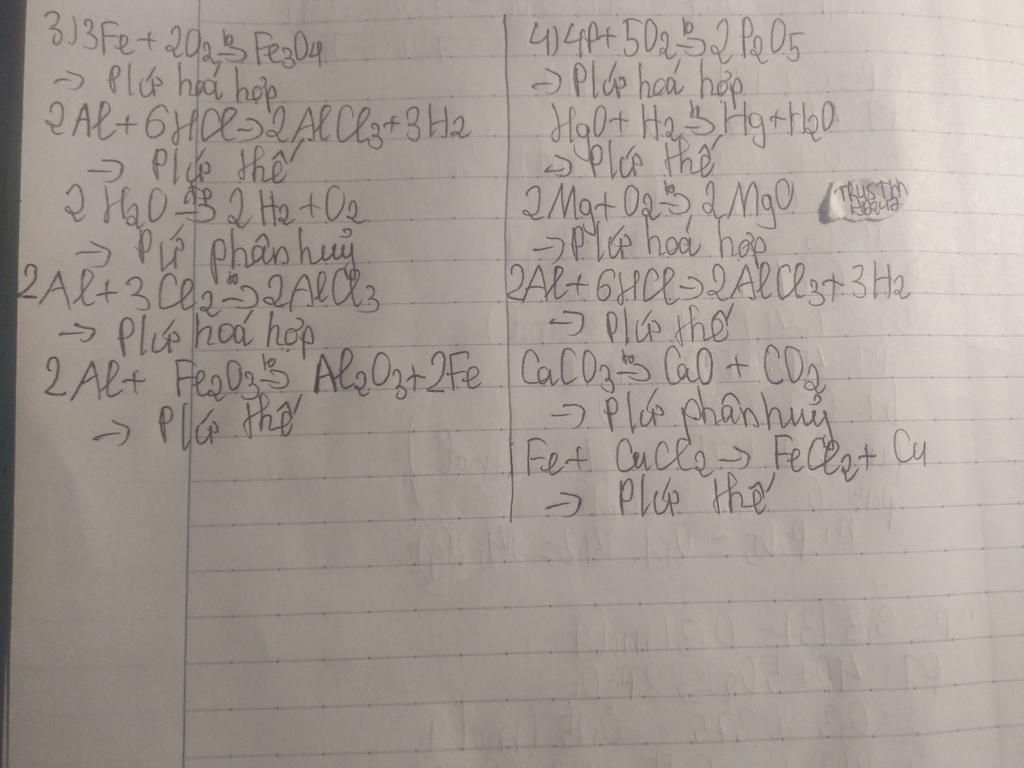 3) 3Fe + 2O2 t°→ Fe3O4
→ P/ứ hoá hợp
2Al + 6HCl → 2AlCl3 + 3H2
→ P/ứ thế
2H2O → 2H2 + O2
→ P/ứ phân huỷ
2Al + 3Cl2 t°→ 2AlCl3
→ P/ứ hoá hợp
2Al + Fe2O3 t°→ Al2O3 + 2Fe
→ P/ứ thế
4) 4P + 5O2 t°→ 2P2O5
→ P/ứ hoá hợp
HgO + H2 t°→ Hg + H2O
→ P/ứ thế
2Mg + O2 t°→ 2MgO
→ P/ứ hoá hợp
2Al + 6HCl → 2AlCl3 + 3H2
→ P/ứ thế
CaCO3 t°→ CaO + CO2
→ P/ứ phân huỷ
Fe + CuCl2 → FeCl2 + Cu
→ P/ứ thế